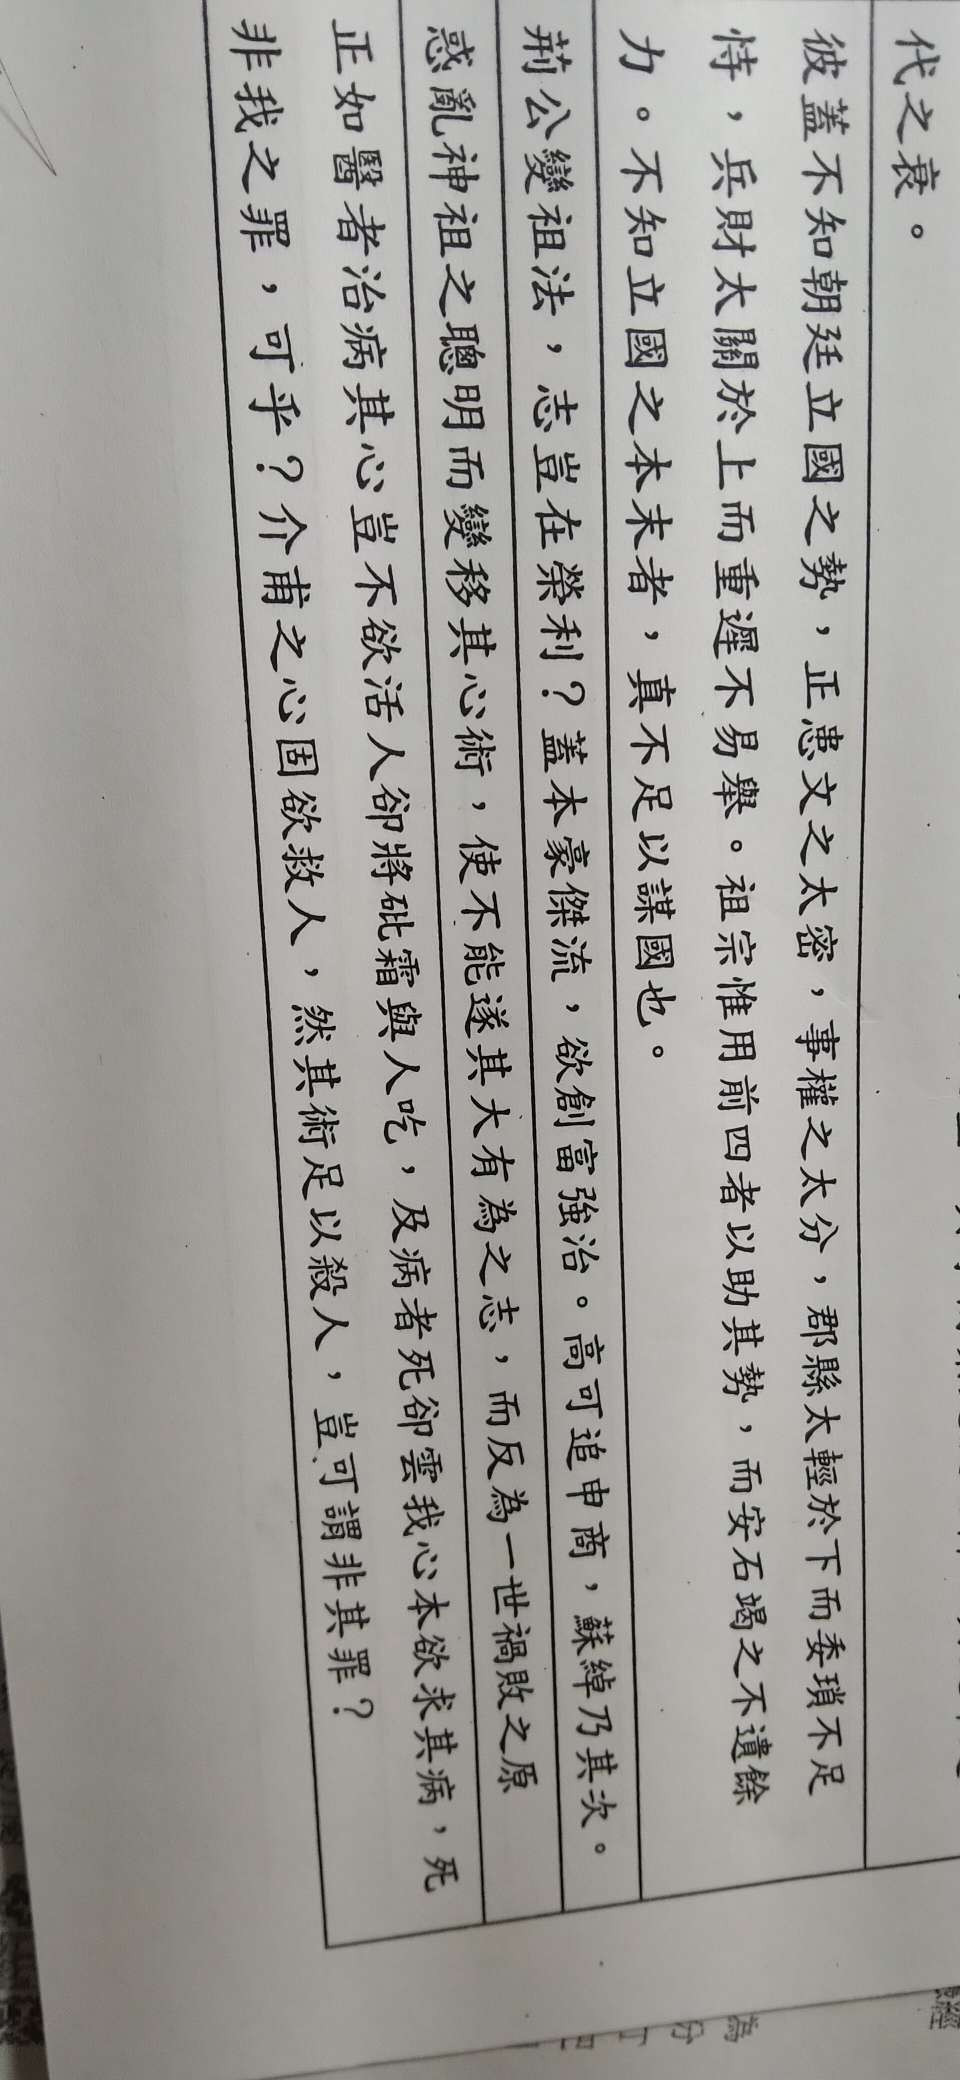 代之衰。
彼蓋不知朝廷立國之勢，正患文之太密，事權之太分，郡縣太輕於下而委瑣不足
恃，兵財太關於上而重遲不易舉。祖宗惟用前四者以助其勢，而安石竭之不遺餘
力。不知立國之本末者，真不足以謀國也。
荊公變祖法，志豈在榮利？蓋本豪傑流，欲創富強治。高可追申商，蘇綽乃其次。
惑亂神祖之聰明而變移其心術，使不能遂其大有為之志，而反為一世禍敗之原
正如醫者治病其心豈不欲活人卻將砒霜與人吃，及病者死卻雲我心本欲求其病，死
非我之罪，可乎？介甫之心固欲救人，然其術足以殺人，豈可謂非其罪？